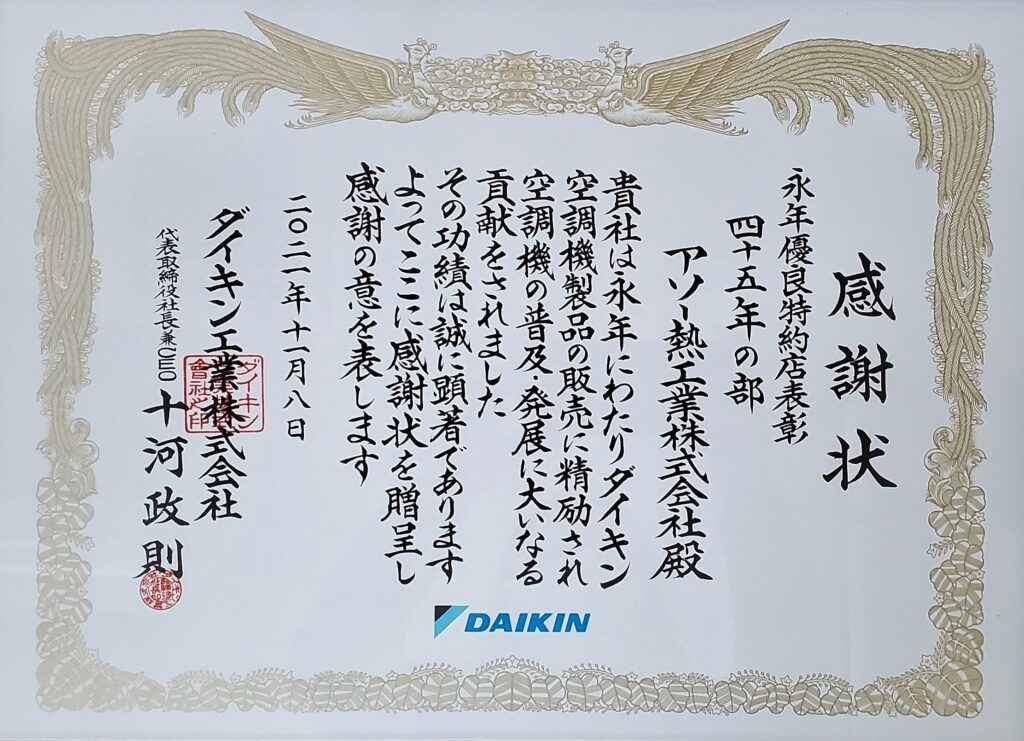 感謝状
永年優良特約店表彰
四十五年の部
アソー熱工業株式会社殿
貴社は永年にわたりダイキン
空調機製品の販売に精励され
空調機の普及・発展に大いなる
貢献をされました
その功績は誠に顕著であります
よってここに感謝状を贈呈し
感謝の意を表します
二〇二一年十一月八日
ダイキン工業株式会社
代表取締役社長兼CEO 十河政則
ダイキン
會社之印
DAIKIN